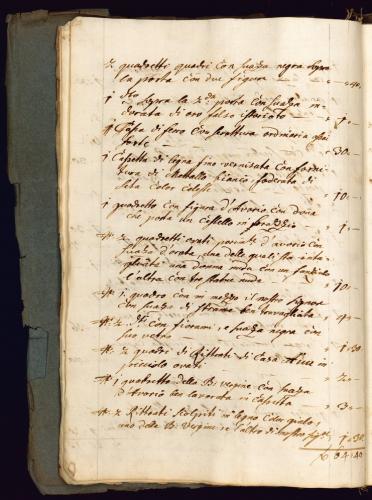 2 quadretti quadri con suaza negra sopra
la porta con due figure — 40
1 do sopra la 2da porta con suaza in
dorata di oro falso — 1
1 Cassa di ferro con serratura ordinaria
forte — 30
1 Cassetta di legno fino vernisata con forni
tura di Mettallo bianco foderata di
seta color celeste — 10
1 quadretto con figura d'Avorio con donna
che porta un castello — 1
2 quadretti ovati d'avorio con
suaza d'orata, due delle quali
una donna nuda con un fanciullo
l'altra con tre statue nude — 10
1 quadro con in mezzo il nostro Signore
con suaza di ben travagliata — 40
2 di con fiorami, e suaza negra con
suo vetro — 1:30
2 quadri di Rittratti di Casa in
picciolo ovati — 20
1 quadretto della B. Vergine con suaza
d'Avorio ben lavorata in cassetta — 30
2 Rittratti scolpiti in legno color giallo,
uno della B. Vergine, e l'altro di nostro Sigre — 1:30
84:40